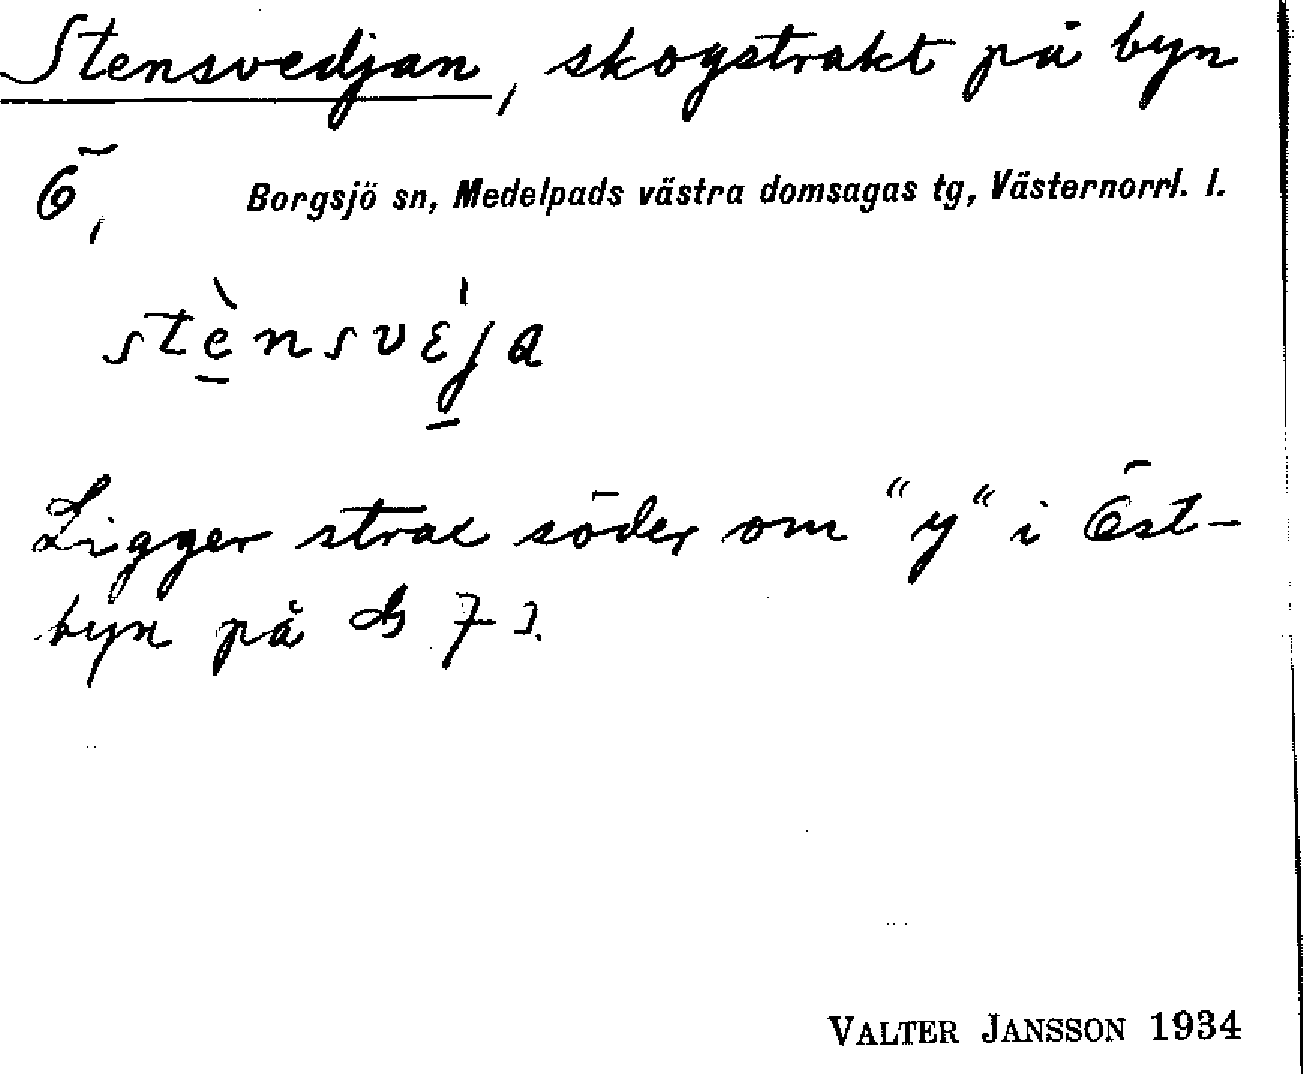 Stensvedjan, skogstrakt på byn
Ö, Borgsjö sn, Medelpads västra domsagas tg, Västernorrl. l.
stè̱nsvɛ́ja
Ligger strax söder om "y" i Öst-
byn på
VALTER JANSSON 1934